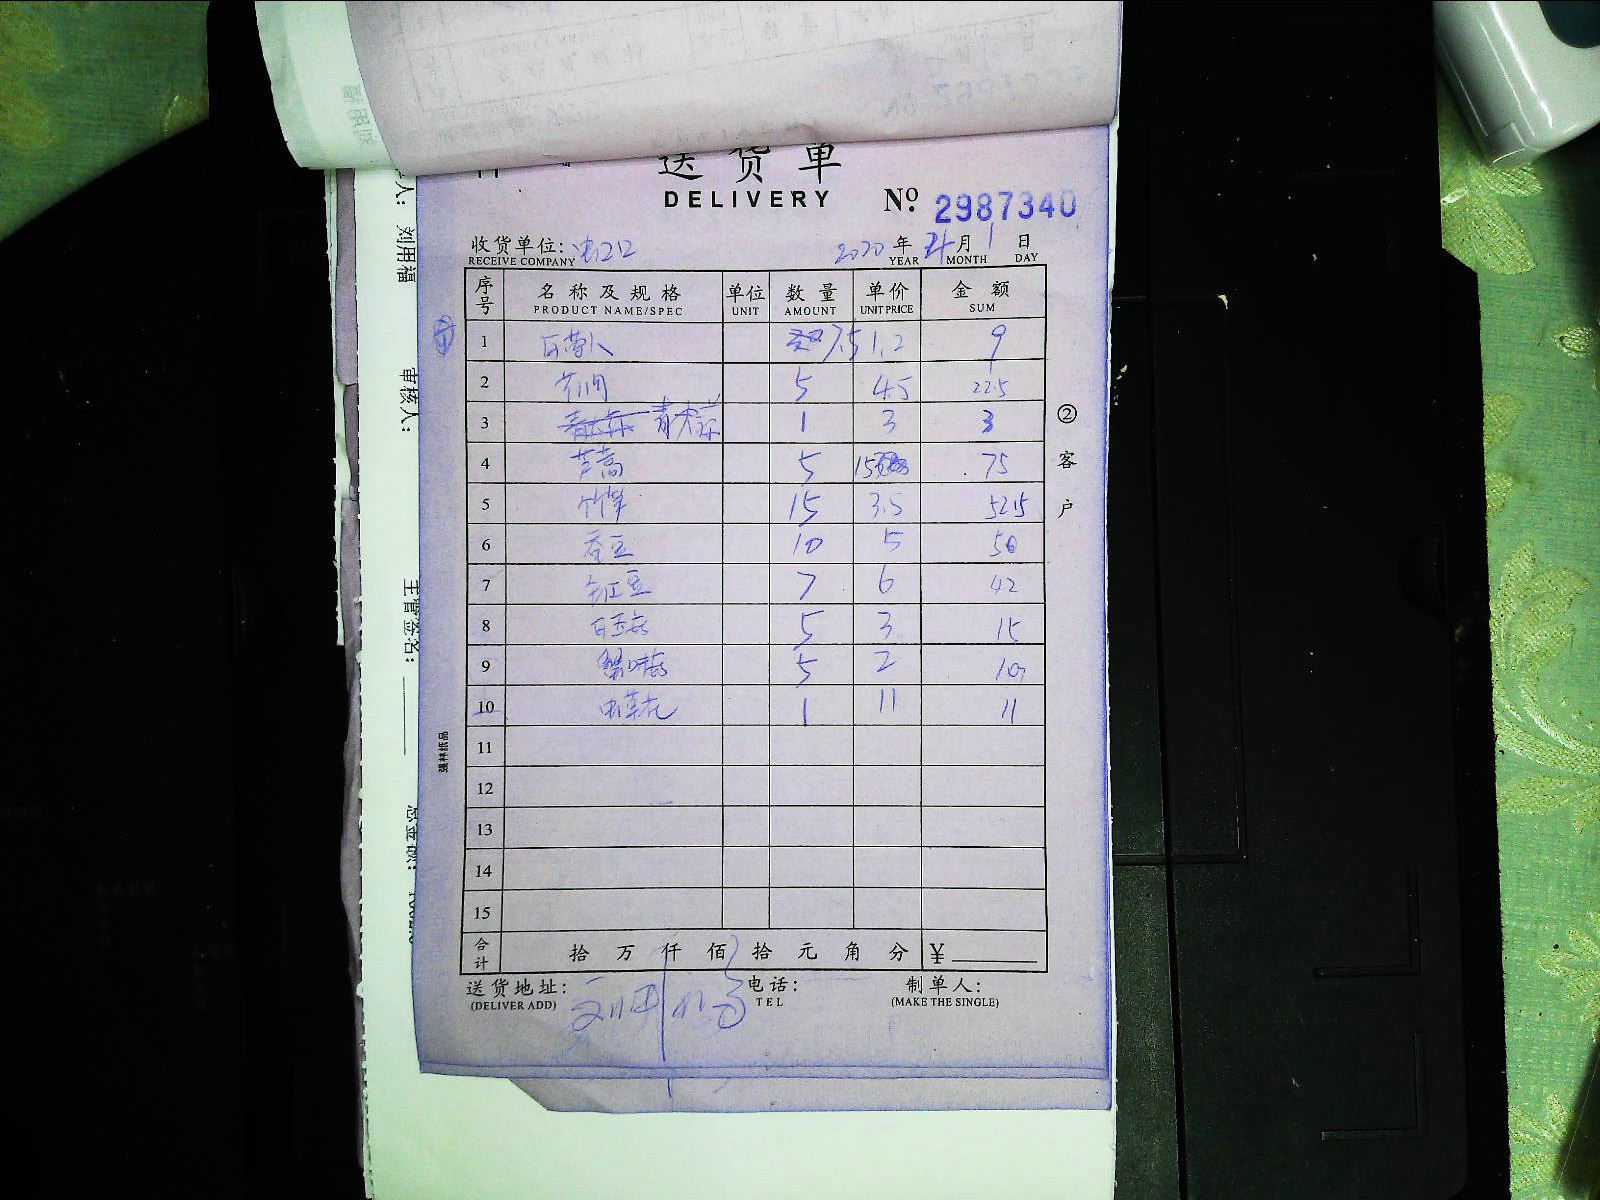 送货单
DELIVERY
Nº. 2987340
收货单位:
RECEIVE COMPANY
2020 年 4 月 1 日
YEAR MONTH DAY
序号 名称及规格 单位 数量 单价 金额
PRODUCT NAME/SPEC UNIT AMOUNT UNIT PRICE SUM
1 白萝卜 7.5 1.2 9
2 5 4.5 22.5
3 青大蒜 1 3 3
4 芦蒿 5 15 75
5 竹笋 15 3.5 52.5
6 10 5 50
7 豆 7 6 42
8 白玉菇 5 3 15
9 5 2 10
10 虫草花 1 11 11
11
12
13
14
15
合计 拾 万 仟 佰 拾 元 角 分 ¥
送货地址: 电话: 制单人:
(DELIVER ADD) TEL (MAKE THE SINGLE)
②客户
强林纸品
人: 刘用福
审核人:
主管签名: